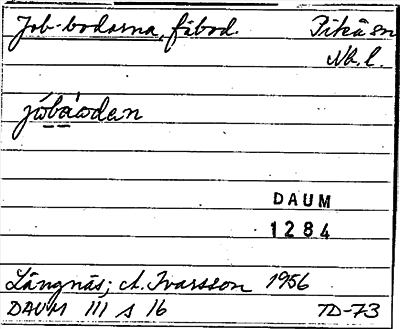 Job-bodarna, fäbod. Piteå sn
Nb. l.
jóbàodan
DAUM
1284
Långnäs; A. Ivarsson 1956
DAUM III s 16 TD-73